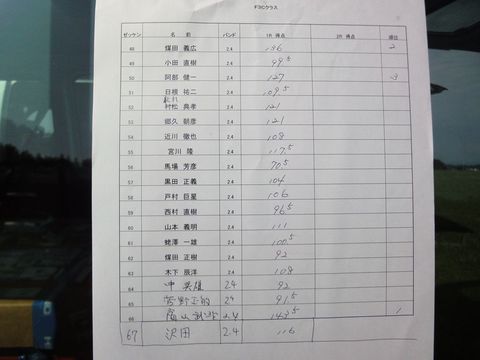 F3Cクラス
ゼッケン 名 前 バンド 1R 得点 2R 得点 順位
48 煤田 義広 2.4 136 2
49 小田 直樹 2.4 99.5
50 阿部 健一 2.4 127 3
51 日根 祐二 2.4 109.5
52 村松 典孝 2.4 121
53 郷久 朝彦 2.4 121
54 近川 徹也 2.4 108
55 宮川 隆 2.4 117.5
56 馬場 芳彦 2.4 70.5
57 黒田 正義 2.4 104
58 戸村 巨星 2.4 106
59 西村 直樹 2.4 96.5
60 山本 義明 2.4 111
61 蛯澤 一雄 2.4 100.5
62 煤田 正樹 2.4 92
63 木下 辰洋 2.4 108
64 中 英雄 2.4 92
65 2.4 91.5
66 2.4 143.5 1
67 沢田 2.4 116